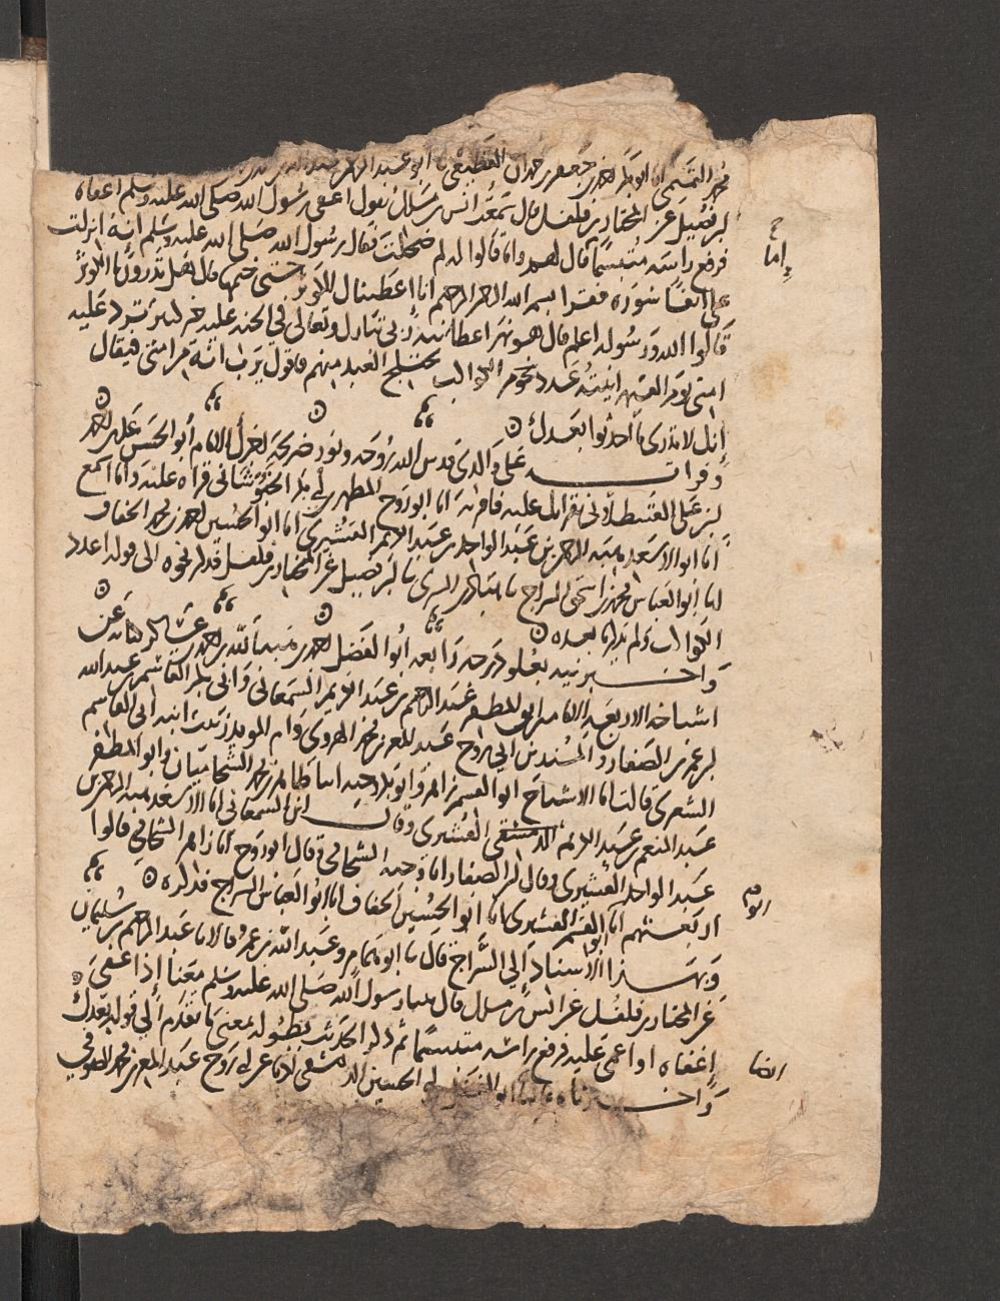 محمد التميمي انا ابو بكر احمد بن جعفر بن حمدان القطيعي نا ابو عبد الرحمن عبد الله
بن فضيل عن المختار بن فلفل قال سمعت انس بن مالك يقول اغفى رسول الله صلى الله عليه وسلم اغفاة
فرفع راسه متبسما قال لهم واما قالوا له لم ضحكت فقال رسول الله صلى الله عليه وسلم انه انزلت
علي انفا سورة فقرا بسم الله الرحمن الرحيم انا اعطيناك الكوثر حتى ختمها قال هل تدرون ما الكوثر
قالوا الله ورسوله اعلم قال هو نهر اعطانيه ربي تبارك وتعالى في الجنة عليه خير كثير ترد عليه
امتي يوم القيمة انيته عدد نجوم الكواكب يختلج العبد منهم فاقول يرب انه من امتي فيقال
انك لا تدري ما احدثوا بعدك
وقرات على والدي قدس الله روحه ونور ضريحه اخبرك الامام ابو الحسن علي بن احمد
بن علي القسطلاني بقراتك عليه فاقر به انا ابو روح المطهر بن ابي بكر الخبوشاني قراة عليه وانا اسمع
انا ابو الاسعد هبة الرحمن بن عبد الواحد بن عبد الكريم القشيري انا ابو الحسين احمد بن محمد الخفاف
انا ابو العباس محمد بن اسحق السراج نا هناد بن السري نا بن فضيل عن المختار بن فلفل فذكر نحوه الى قوله عدد
الكواكب ولم يذكر ما بعده
واخبرنيه بعلو درجة رابعة ابو الفضل احمد بن هبة الله بن احمد بن عساكر كتابة عن
اشياخه الاربعة الامام ابي المظفر عبد الرحيم بن عبد الكريم السمعاني وابي بكر القاسم بن عبد الله
بن عمر بن الصفار والمسندين ابي روح عبد المعز بن محمد الهروي وام المويد زينب ابنة ابي القاسم
الشعري قالت انا الاشياخ ابو القسم زاهر وابو بكر وجيه ابنا طاهر بن محمد الشحاميان وابو المظفر
عبد المنعم بن عبد الكريم القشيري وقال ابن السمعاني انا ابو الاسعد هبة الرحمن بن
عبد الواحد القشيري وقال ابن الصفار انا وجيه الشحامي وقال ابو روح انا زاهر الشحامي قالوا
اربعتهم انا ابو القسم القشيري انا ابو الحسين الخفاف انا ابو العباس السراج فذكره
وبهذا الاسناد الى السراج قال نا ابو همام وعبد الله بن عمر قالا نا عبد الرحيم بن سليمان
عن المختار بن فلفل عن انس بن مالك قال بينا رسول الله صلى الله عليه وسلم معنا اذ اغفى
اغفاة او اغمي عليه فرفع راسه متبسما ثم ذكر الحديث بطوله بمعنى ما تقدم الى قوله بعدك
واخبرناه عاليا ابو الفضل بن ابي الحسين الدمشقي اذنا عن ابي روح عبد المعز بن محمد الصوفي
اما
ايضا